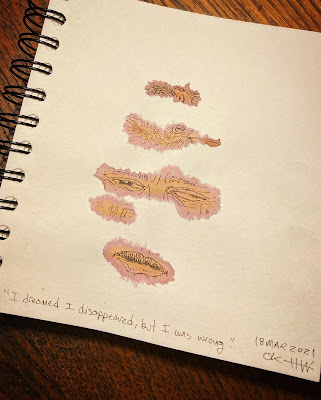 "I dreamed I disappeared, but I was wrong."
18 MAR 2021
CK-HW